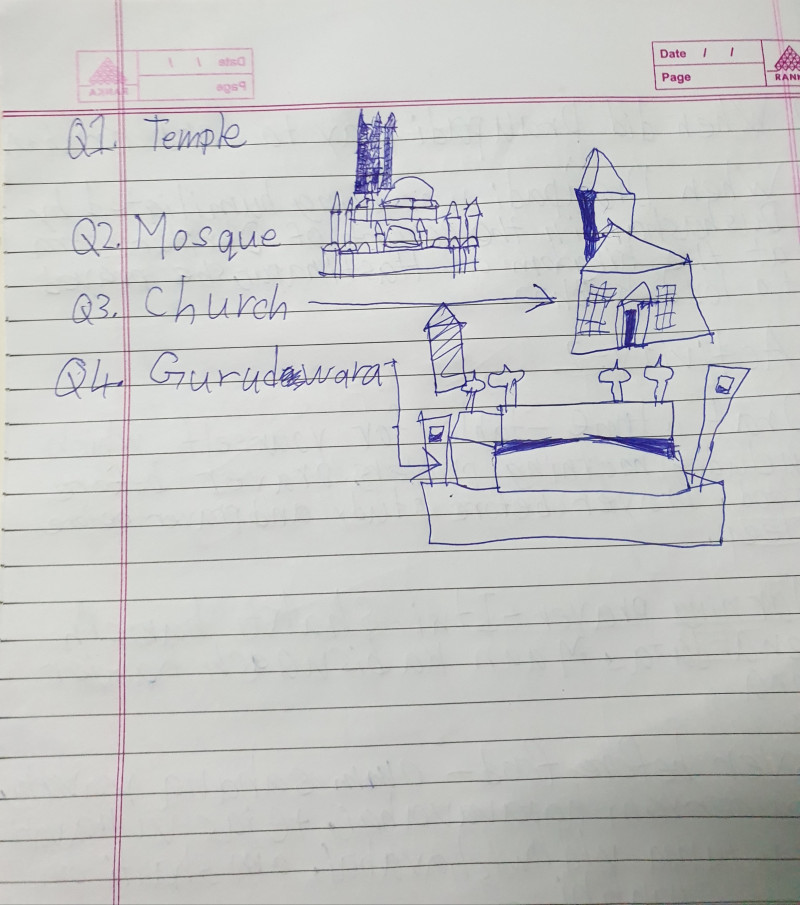 Date / /
Page
RANK
Q1. Temple
Q2. Mosque
Q3. Church
Q4. Gurudwara